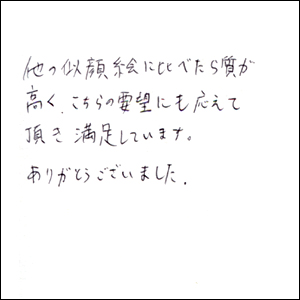 他の似顔絵に比べたら質が
高く、こちらの要望にも応えて
頂き満足しています。
ありがとうございました.